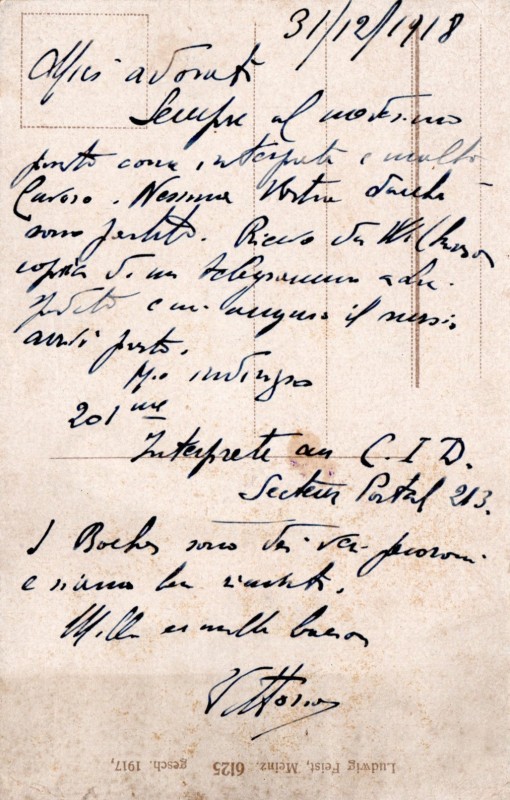 31/12/1918
Miei adorati
Sempre al medesimo
posto come interprete e molto
lavoro. Nessuna Vostra dacchè
sono partito. Ricevo da
copia di un telegramma a Lui
spedito e mi auguro il messo
arrivi presto.
Mio indirizzo
201 me
Interprete au C.I.D.
Secteur Postal 213.
I Boches sono dei veri
e siamo ben
Mille e mille baci
Vittorio
Ludwig Feist, Mainz. 6125 gesch. 1917,